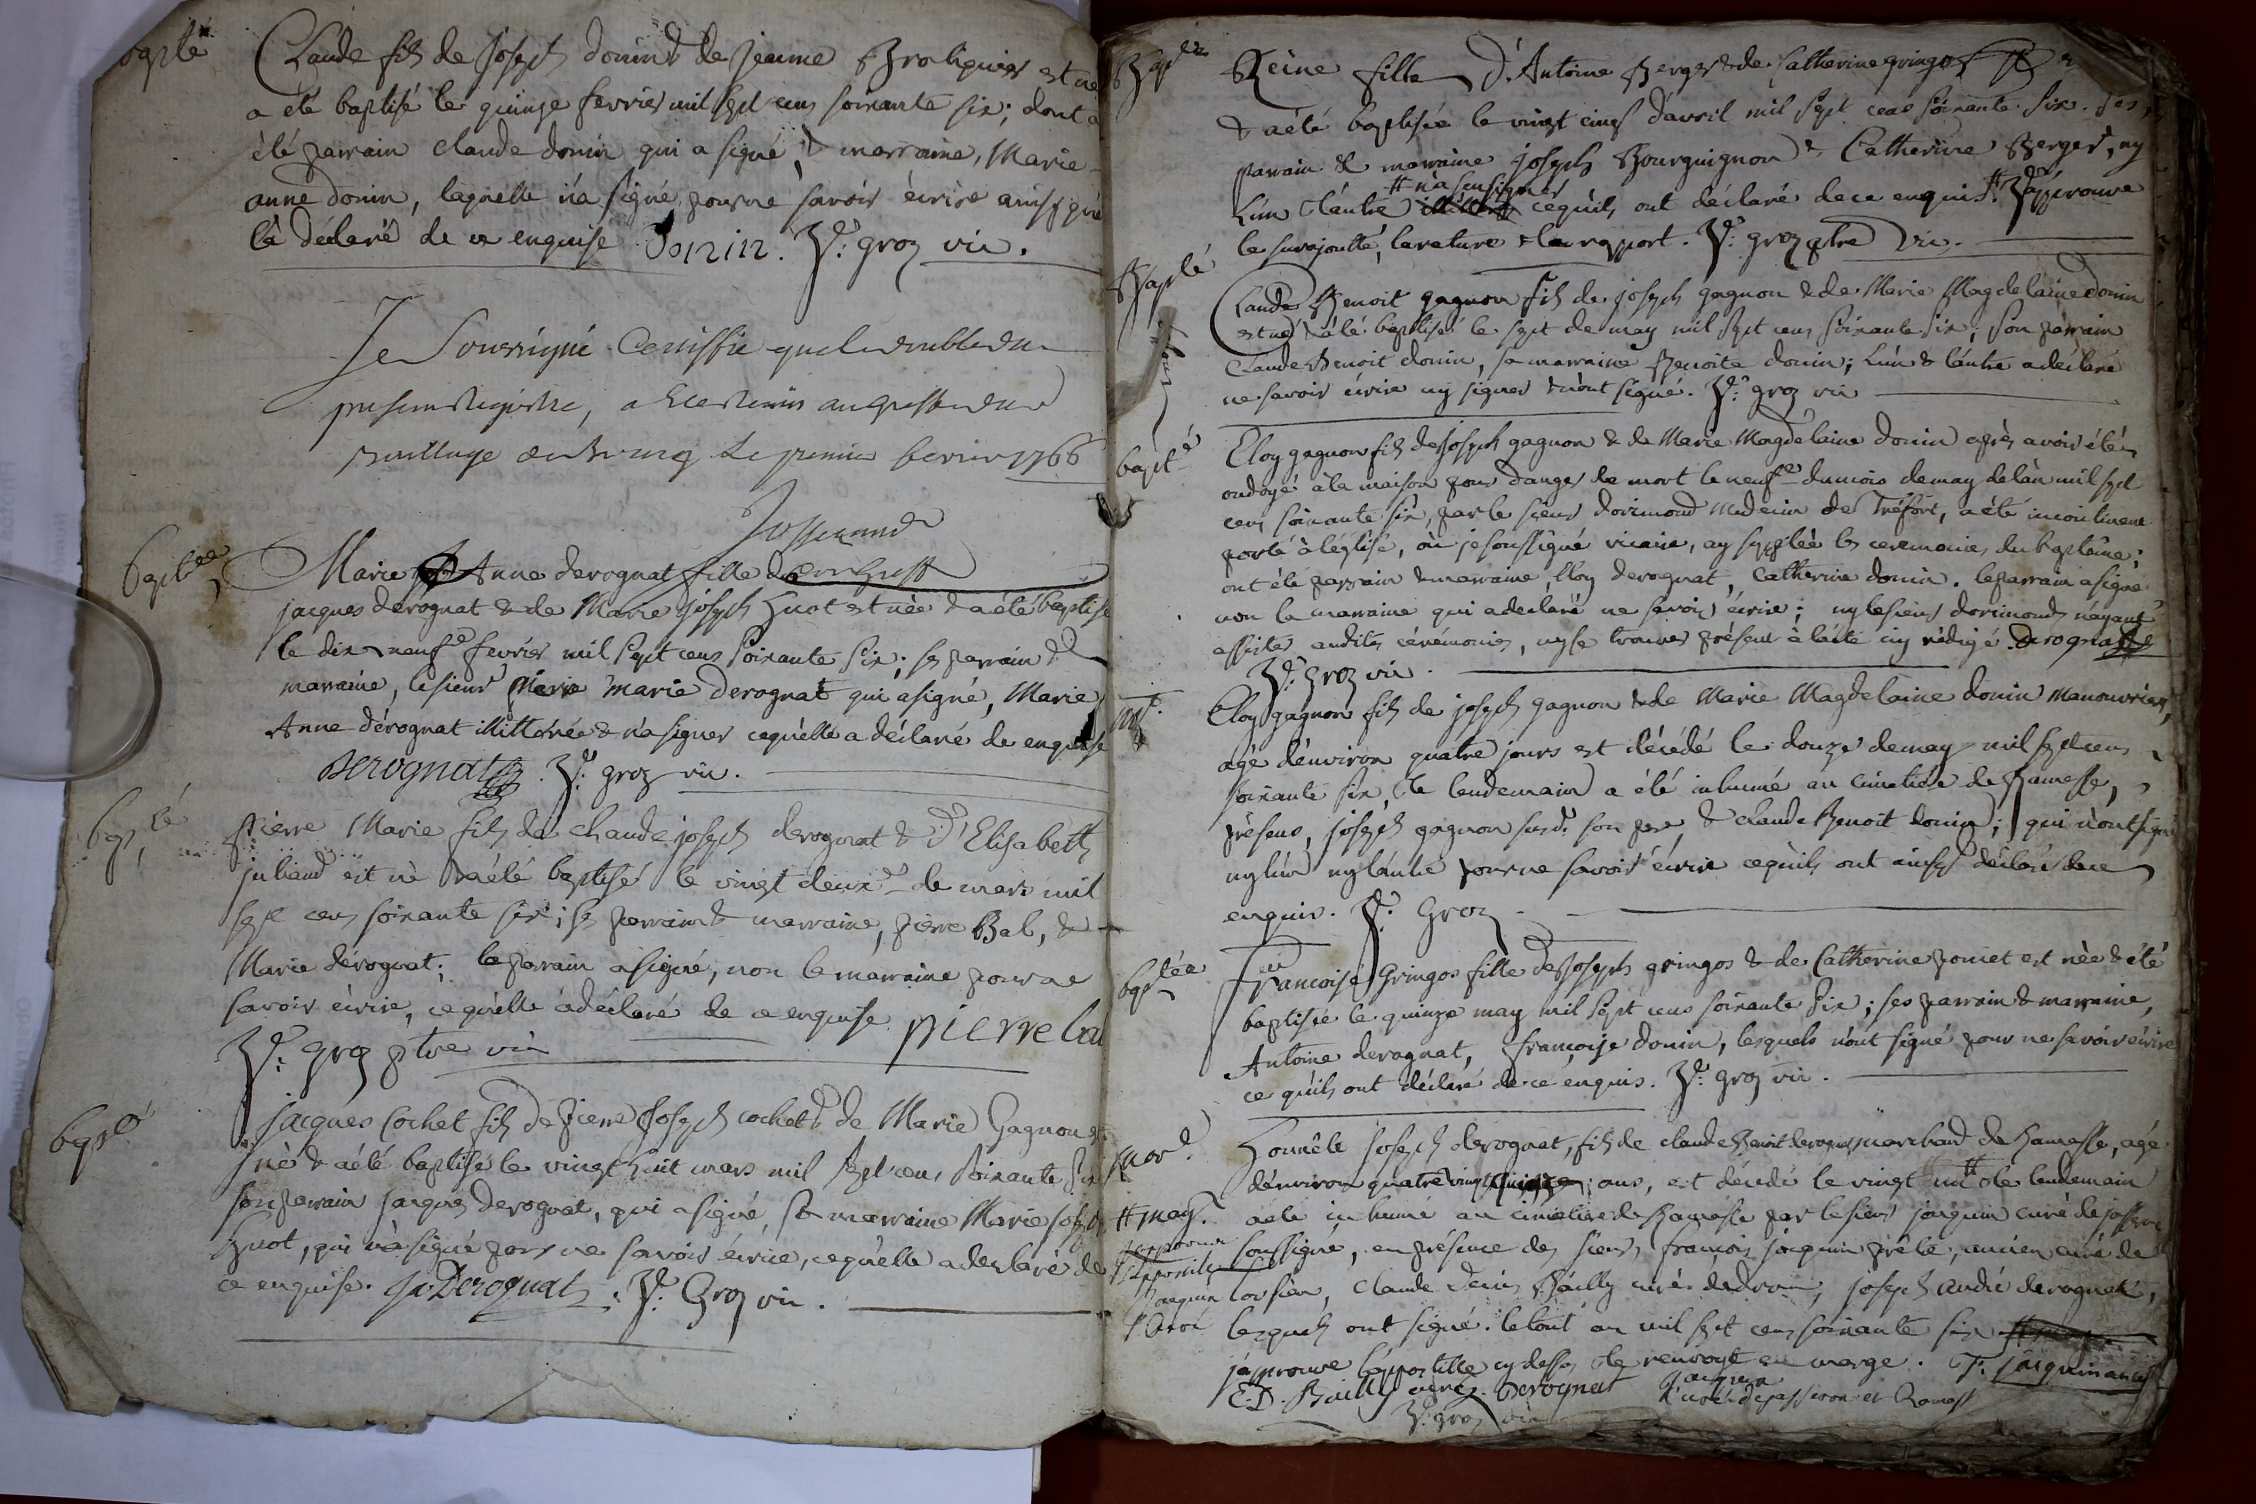 bapte
Claude fils de joseph donin & de jeanne est né
a été baptisé le quinze fevrier mil sept cens soixante six ; dont a
été parrain claude donin qui a signé, & marraine, Marie
anne donin, laquelle n'a signé pour ne savoir écrire ainsy que
l'a déclaré de ce enquise Donin. J: groz vic.
Je Soussigné Certiffie que le double du
present Registre, a Este Remis au greffe du
Bailliage de Bourg Le premier fevrier 1766
baptée
Marie Anne derognat fille de
jacques derognat & de Marie joseph huot est née & a été baptisé
le dix neuf fevrier mil sept cens soixante six ; ses parrain &
marraine, le sieur marie derognat qui a signé, Marie
Anne dérognat illittérée & n'a signer ce qu'elle a déclaré de enquise
Derognat. J: groz vic.
bapté
Pierre Marie fils de claude joseph derognat & d'Elisabeth
juliand est né & a été baptisé le vingt deux de mars mil
sept cens soixante six ; ses parrain & marraine, pierre Bal, &
Marie dérognat ; le parrain a signé, non la marraine pour ne
savoir écrire, ce qu'elle a déclaré de ce enquise pierre bal
J: groz ptre vic
bapté
jacques Cochet fils de pierre joseph cochet & de Marie Gagnon est
né & a été baptisé le vingt huit mars mil sept cens soixante six
son parrain jacques derognat, qui a signé, sa marraine Marie joseph
huot, qui n'a signé pour ne savoir écrire, ce qu'elle a declaré de
ce enquise. J: Derognat. J: Groz vic.
Bapée
Reine fille d'Antoine Berger & de Catherine gringos
& a été baptisée le vingt cinq d'avril mil sept cens soixante six. ses
parrain & marraine joseph Bourguignon & Catherine Berger, ny
# n'a sçu signer
L'un & l'autre ce qu'ils ont déclaré de ce enquis #. J'approuve
le surajoutté, la rature & le rapport. J: groz ptre vic.
Bapté
Claude Benoit gagnon fils de joseph gagnon & de Marie Magdelaine donin
est né & a été baptisé le sept de may mil sept cens soixante six ; son parrain
Claude Benoit donin, sa marraine Benoite donin ; l'un & l'autre a déclaré
ne savoir écrire ny signer & n'ont signé. J: groz vic
bapté
Eloy gagnon fils de joseph gagnon & de Marie Magdelaine donin après avoir été
ondoyé à la maison pour danger de mort le neuf du mois de may de l'an mil sept
cens soixante six, par le sieur dorimond medecin de Tréfort, a été incontinent
porté à l'église, où je soussigné vicaire, ay supplée les ceremonies du baptême ;
ont été parrain & marraine, Eloy derognat, Catherine donin. le parrain a signé
non la marraine qui a declaré ne savoir écrire ; ny le sieur dorimond n'ayant
assisté audites cérémonies, ny se trouver présent à l'acte cy rédigé. derognat
J: groz vic.
mort
Eloy gagnon fils de joseph gagnon & de Marie Magdelaine donin manouvrier,
agé d'environ quatre jours est décédé le douze de may mil sept cens
soixante six, & le lendemain a été inhumé au cimetière de Ramasse,
présens, joseph gagnon susd. son pere, & claude Benoit donin ; qui n'ont signé
ny l'un ny l'autre pour ne savoir écrire ce qu'ils ont ainsy déclaré de ce
enquis. J: Groz
baptée
Francoise Gringos fille de joseph gringos & de Catherine poncet est née & été
baptisée le quinze may mil sept cens soixante six ; ses parrain & marraine,
Antoine derognat, françoise donin, lesquels n'ont signé pour ne savoir écrire
ce qu'ils ont déclaré de ce enquis. J: groz vic.
mort
honnête joseph derognat, fils de claude Benoit derognat marchand de Ramasse, agé
d'environ quatre vingt ans, est décédé le vingt un # & le lendemain
# may.
a été inhumé au cimetiere de Ramasse par le sieur jaquin curé de jasseron
j'approuve
l'appostile
jaquin
Curé
soussigné, en présence des sieurs françois jacquin prêtre, ancien curé de
Corsieu, Claude Denis Bailly curé de drom, joseph andré derognat,
lesquels ont signé. le tout an mil sept cens soixante six
j'approuve l'appostille cy dessus & le renvoye en marge. F. jacquin ancien
C.D. Bailly curé. Derognat jaquin
Curé de jasseron et Ramasse
J: groz vic